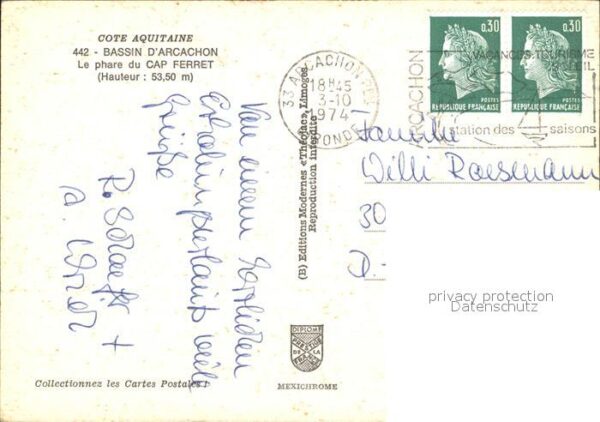 COTE AQUITAINE
442 - BASSIN D'ARCACHON
Le phare du CAP FERRET
(Hauteur : 53,50 m)
Von einem herrlichen
viele
Grüße
+
Collectionnez les Cartes Postales !
(B) Editions Modernes «Théojac», Limoges
Reproduction interdite
DIPLOME
PRESTIGE
DE LA
FRANCE
MEXICHROME
33 ARCACHON
18H45
3-10
1974
GIRONDE
ARCACHON
VACANCES. TOURISME
station des 4 saisons
0,30
POSTES
REPUBLIQUE FRANÇAISE
0,30
POSTES
REPUBLIQUE FRANÇAISE
Familie
Willi
30
D-
privacy protection
Datenschutz